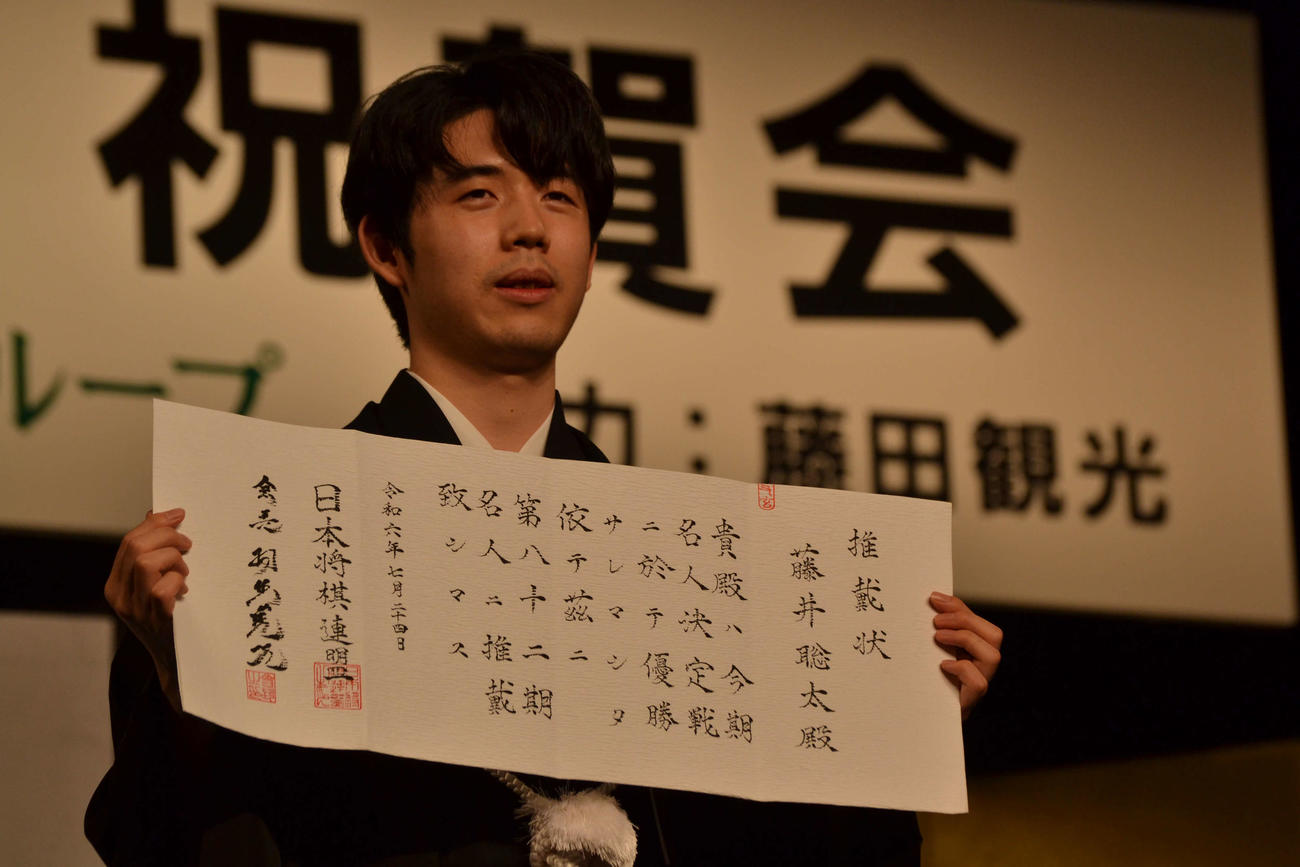 祝賀会
ループ
力：藤田観光
推戴状
藤井聡太殿
貴殿ハ今期
名人決定戦
ニ於テ優勝
サレマシタ
依テ茲ニ
第八十二期
名人ニ推戴
致シマス
令和六年七月二十四日
日本将棋連盟
会長 羽生善治